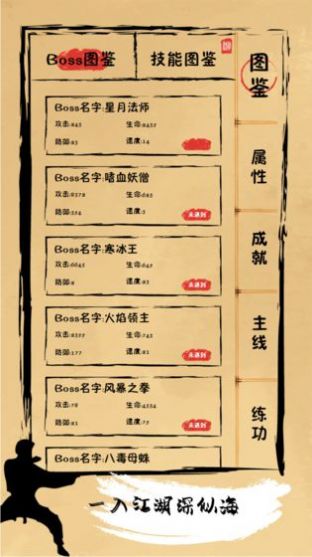 Boss图鉴
技能图鉴
图鉴
属性
成就
主线
练功
Boss名字:星月法师
攻击:843
生命:8437
防御:83
速度:14
Boss名字:嗜血妖僧
攻击:8378
生命:645
防御:334
速度:3
未遇到
Boss名字:寒冰王
攻击:6645
生命:645
防御:8
速度:93
未遇到
Boss名字:火焰领主
生命:743
防御:177
速度:81
未遇到
Boss名字:风暴之拳
攻击:78
生命:4334
防御:91
速度:73
未遇到
Boss名字:八毒母蛛
一入江湖深似海